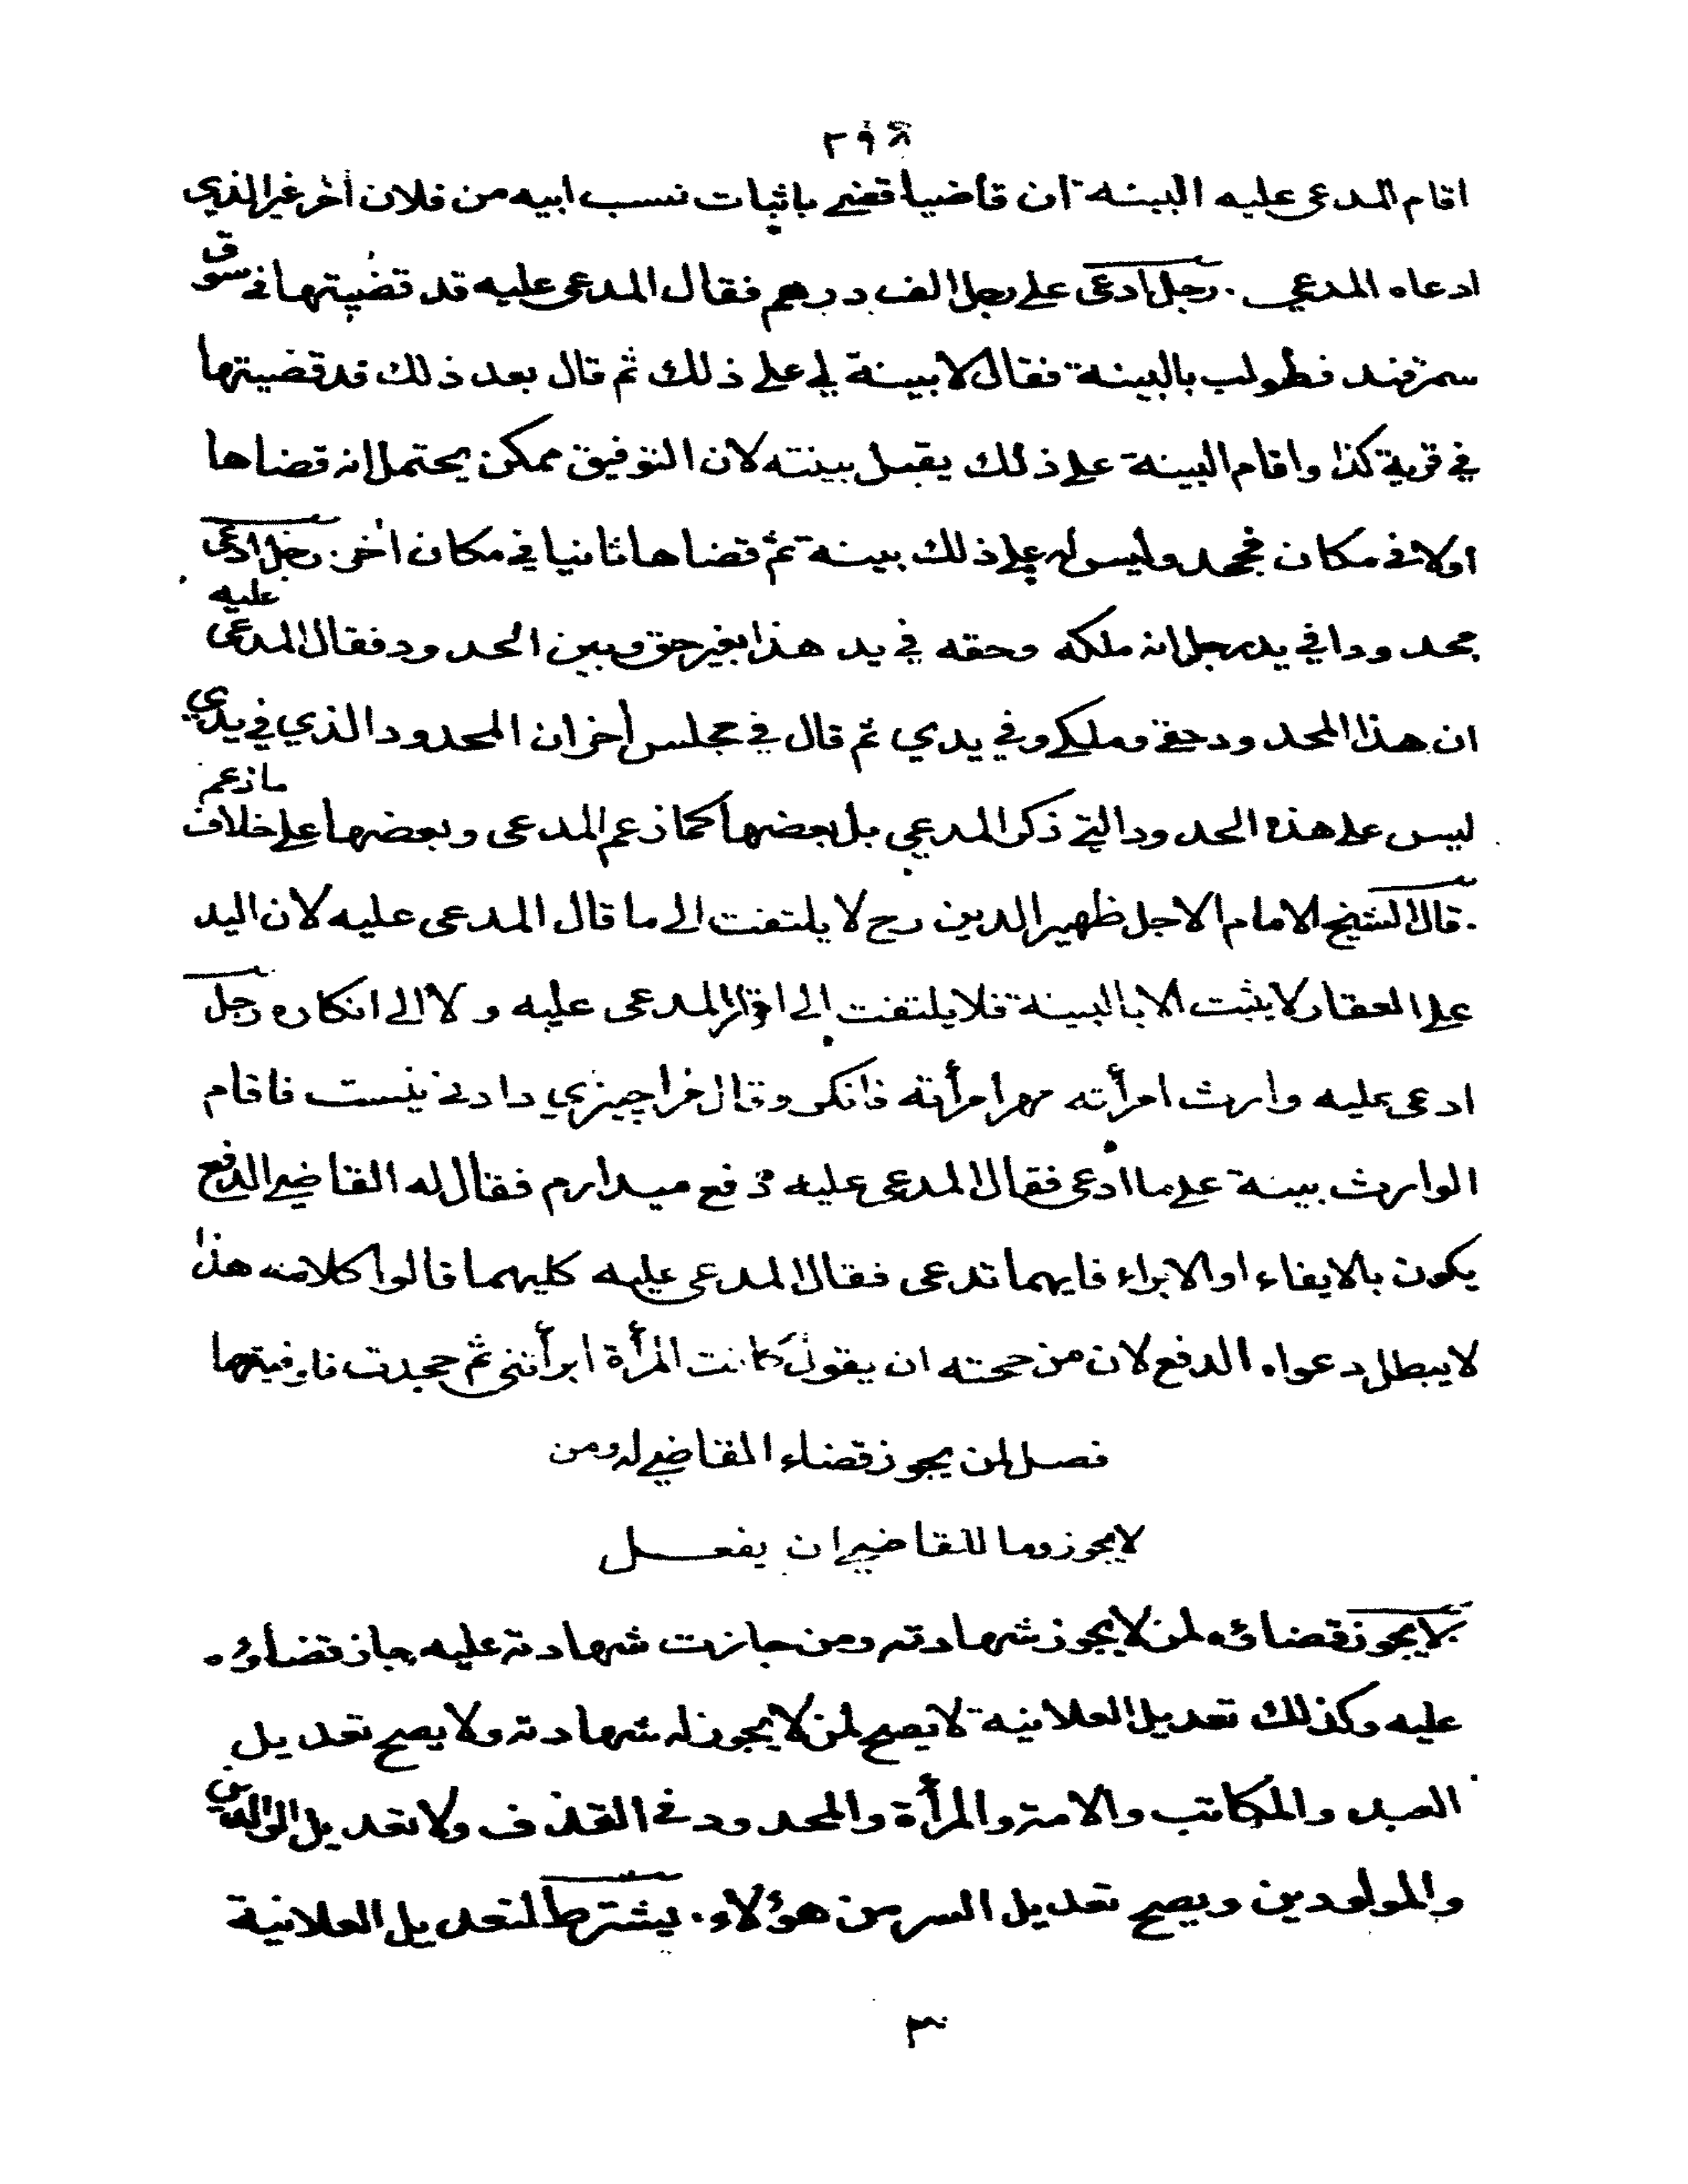 ٢٩٨
اقام المدعى عليه البينة ان قاضيا قضى باثبات نسب ابيه من فلان أخر غير الذي
ادعاه المدعي . رجل ادعى على رجل الف درهم فقال المدعى عليه قد قضيتها في سوق
سمرقند فطولب بالبينة فقال لا بينة لي على ذلك ثم قال بعد ذلك قد قضيتها
في قرية كذا واقام البينة على ذلك يقبل بينته لان التوفيق ممكن يحتمل انه قضاها
اولا في مكان فجحد وليس له على ذلك بينة ثم قضاها ثانيا في مكان اخر . رجل ادعى
محدودا في يد رجل انه ملكه وحقه في يد هذا بغير حق وبين الحدود فقال المدعى عليه
ان هذا المحدود حقي وملكي وفي يدي ثم قال في مجلس أخر ان المحدود الذي في يدي
ليس على هذه الحدود التي ذكر المدعي بل بعضها كما زعم المدعى وبعضها على خلاف ما زعم
. قال الشيخ الامام الاجل ظهير الدين رح لا يلتفت الى ما قال المدعى عليه لان اليد
على العقار لا يثبت الا بالبينة فلا يلتفت الى اقرار المدعى عليه و لا الى انكاره رجل
ادعى عليه وارث امرأته مهر امرأته فانكر وقال مرا چيزي دادني نيست فاقام
الوارث بينة على ما ادعى فقال المدعى عليه دفع ميدارم فقال له القاضي الدفع
يكون بالايفاء او الابراء فايهما تدعى فقال المدعى عليه كليهما قالوا كلامه هذا
لا يبطل دعواه الدفع لان من حجته ان يقول كانت المرأة ابرأتني ثم جحدت فاوفيتها
فصل لمن يجوز قضاء القاضي له ومن
لا يجوز وما للقاضي ان يفعل
لا يجوز قضاؤه لمن لا يجوز شهادته ومن جازت شهادته عليه جاز قضاؤه
عليه وكذلك تعديل العلانية لا يصح لمن لا يجوز له شهادته ولا يصح تعديل
العبد والمكاتب والامة والمرأة والمحدود في القذف ولا تعديل الوالدين
والمولودين ويصح تعديل السر من هؤلاء . يشترط لتعديل العلانية